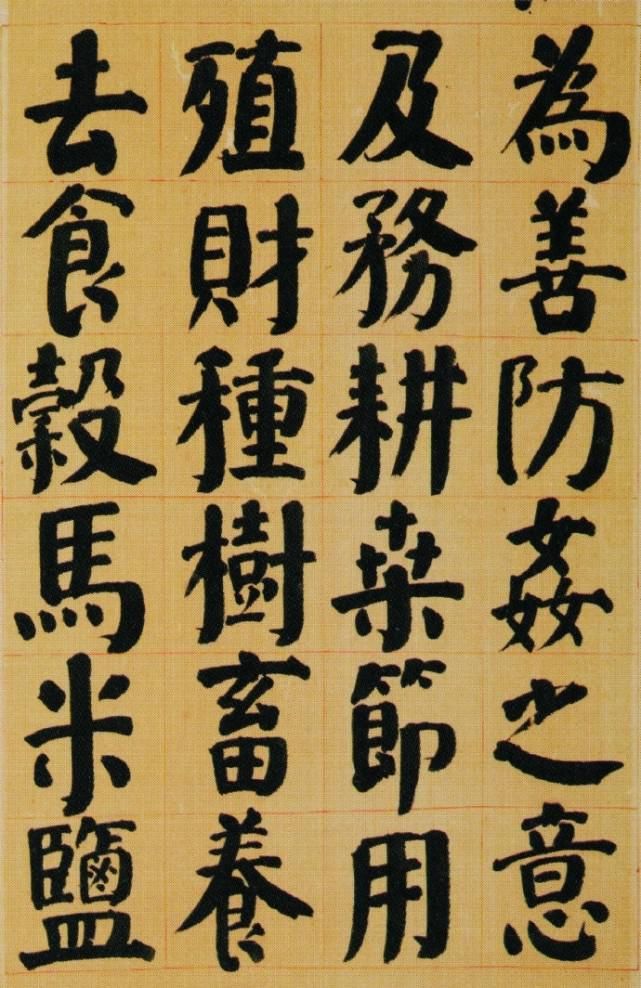 為善防姦之意
及務耕桒節用
殖財種樹畜養
去食穀馬米鹽